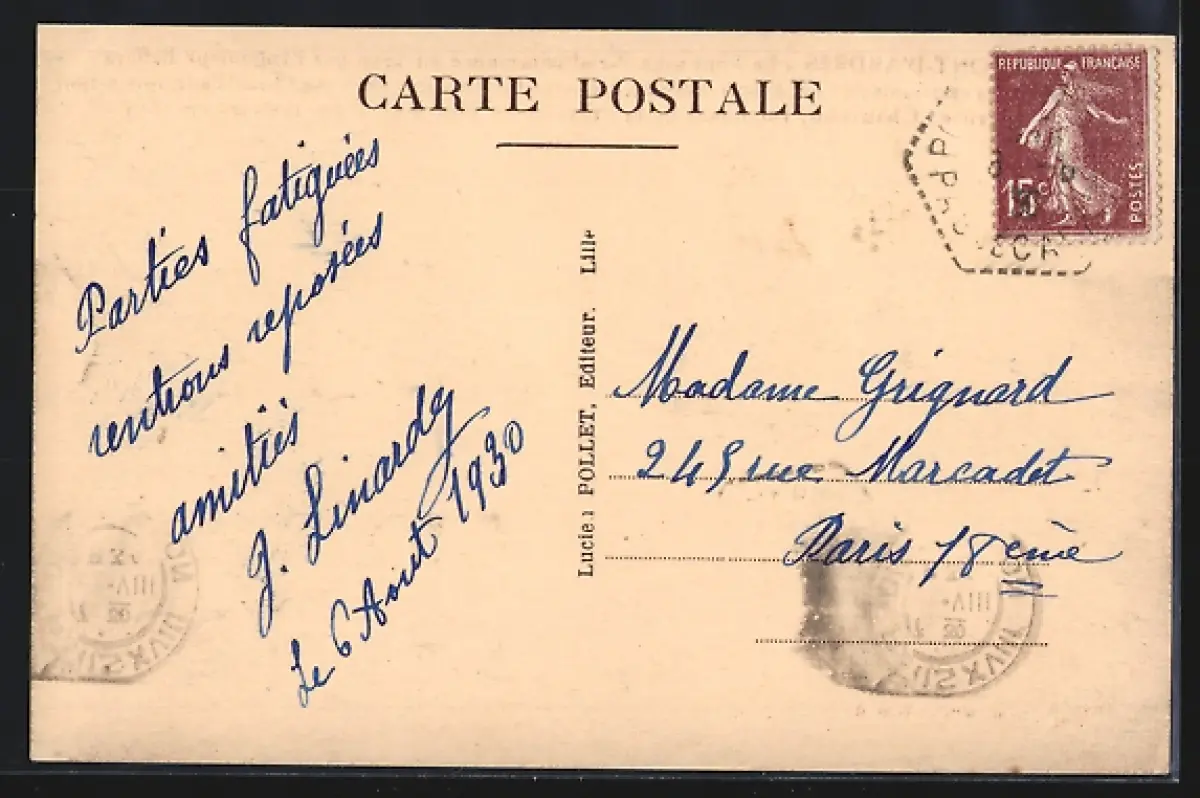 CARTE POSTALE
REPUBLIQUE FRANÇAISE
15c
POSTES
Parties fatiguées
rentrons reposées
amitiés
J. Linardy
Le 6 Aout 1930
Lucien POLLET, Editeur. Lille
Madame Grignard
245 rue Marcadet
Paris 18eme